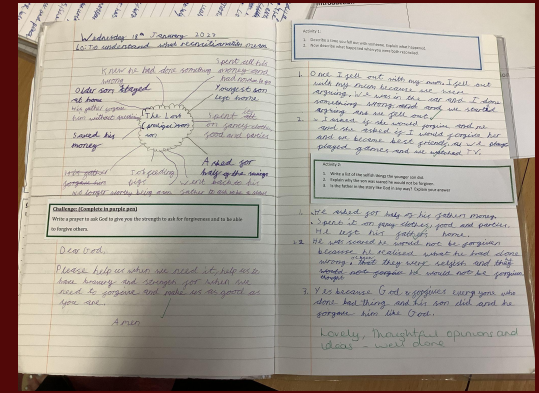 Wednesday 18th January 2023
L.O: To understand what reconciliation means
Knew he had done something wrong
Spent all his money and
had
Youngest son left home
Older son stayed at home
The Lost
son
Spent
on fancy
food and parties
Saved his money
Asked for half of the
pigs
went back to his
Challenge: (Complete in purple pen)
Write a prayer to ask God to give you the strength to ask for forgiveness and to be able
to forgive others.
Dear God,
Please help us when we need it, help us to
have bravery and strength for when we
need to forgive and make us as good as
you are.
Amen
Activity 1:
1. Describe a time you fell out with someone. Explain what happened.
2. Now describe what happened when you were both reconciled.
1. Once I fell out with my mum I fell out
with my mum because we were
arguing. We was in the car and I done
something wrong and we started
arguing and we fell out.
2. I asked if she would forgive me
and she asked if I would forgive her
and we became best friends. We
played games and we watched T.V.
Activity 2:
1. Write a list of the selfish things the younger son did.
2. Explain why the son was scared he would not be forgiven.
3. Is the father in the story like God in any way? Explain your answer
1. He asked for half of his fathers money.
Spent it on clothes, food and parties.
He left his fathers home.
2. He was scared he would not be forgiven
because he realised what he had done
wrong. they were selfish and
he would not be forgiven
3. Yes because God forgives everyone who
done bad thing and his son did and he
forgave him like God.
Lovely, thoughtful opinions and
ideas - well done